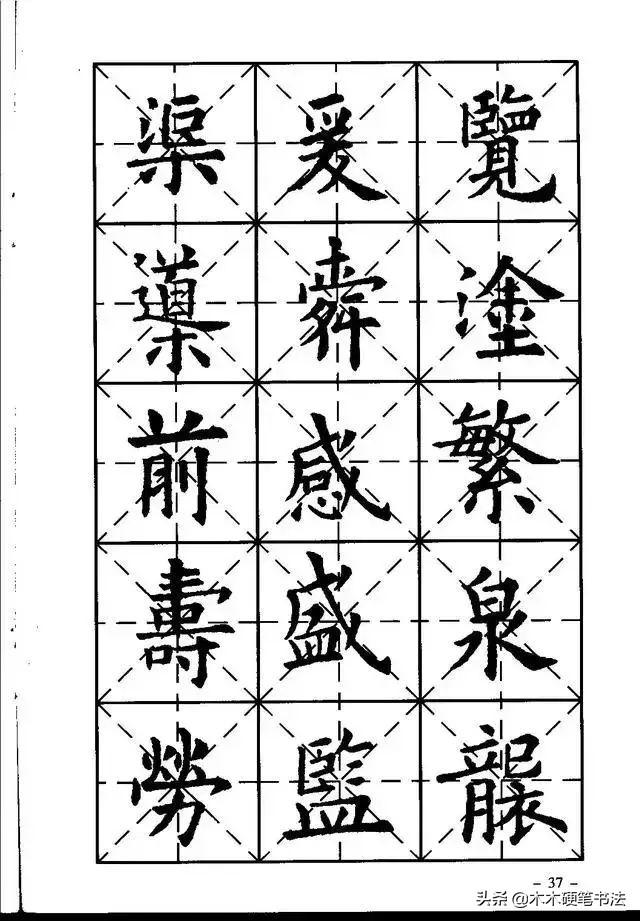 覽塗繁泉襲
爰舜感盛監
渠導前壽勞
- 37 -
头条 @木木硬笔书法